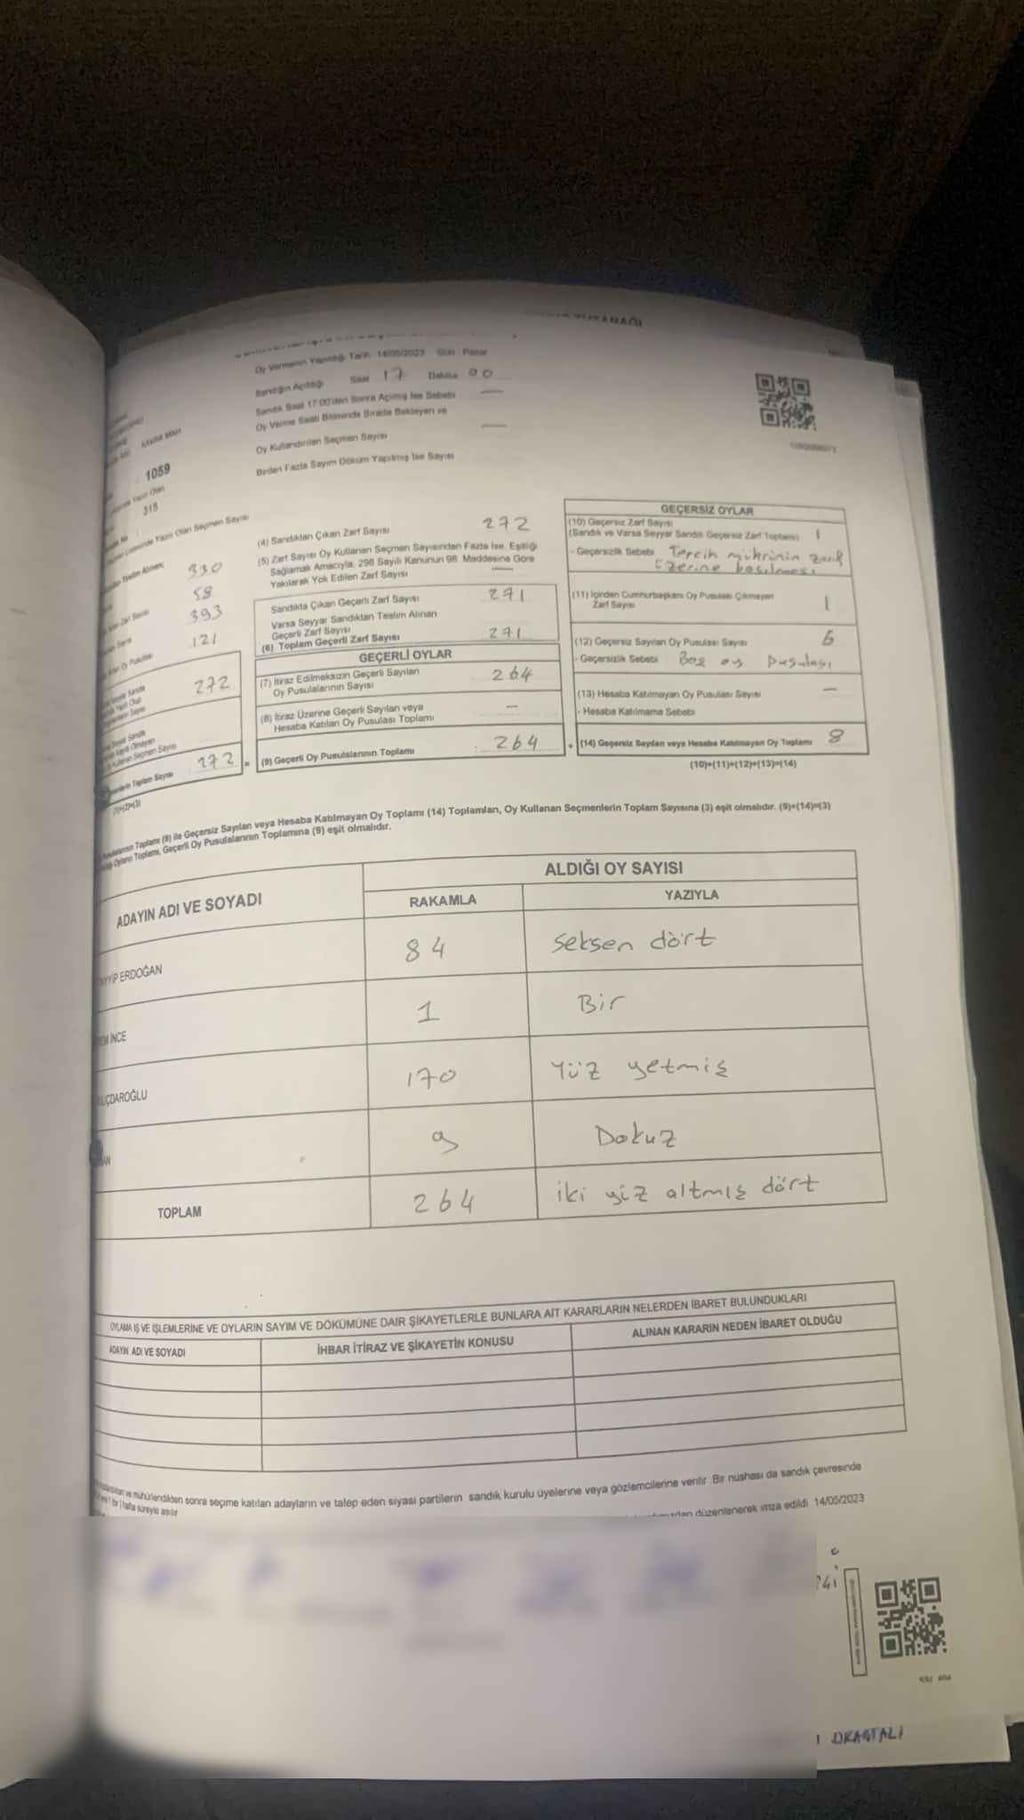 TUTANAĞI
Oy Vermenin Yapıldığı Tarih 14/05/2023 Gün Pazar
Sandığın Açıldığı Saat 17 Dakika 00
Sandık Saat 17:00'den Sonra Açılmış İse Sebebi —
Oy Verme Saati Bitiminde Sırada Bekleyen ve
Oy Kullandırılan Seçmen Sayısı —
Birden Fazla Sayım Döküm Yapılmış İse Sayısı
1059
315
330
58
393
121
272
272
(4) Sandıktan Çıkan Zarf Sayısı 272
(5) Zarf Sayısı Oy Kullanan Seçmen Sayısından Fazla İse, Eşitliği
Sağlamak Amacıyla, 298 Sayılı Kanunun 98. Maddesine Göre
Yakılarak Yok Edilen Zarf Sayısı —
Sandıkta Çıkan Geçerli Zarf Sayısı 271
Varsa Seyyar Sandıktan Teslim Alınan
Geçerli Zarf Sayısı
(6) Toplam Geçerli Zarf Sayısı 271
GEÇERLİ OYLAR
(7) İtiraz Edilmeksizin Geçerli Sayılan
Oy Pusulalarının Sayısı 264
(8) İtiraz Üzerine Geçerli Sayılan veya
Hesaba Katılan Oy Pusulası Toplamı —
(9) Geçerli Oy Pusulalarının Toplamı : 264
GEÇERSİZ OYLAR
(10) Geçersiz Zarf Sayısı
(Sandık ve Varsa Seyyar Sandık Geçersiz Zarf Toplamı) 1
- Geçersizlik Sebebi Tercih mührünin zarf
üzerine basılması
(11) İçinden Cumhurbaşkanı Oy Pusulası Çıkmayan
Zarf Sayısı 1
(12) Geçersiz Sayılan Oy Pusulası Sayısı 6
- Geçersizlik Sebebi Boş oy pusulası
(13) Hesaba Katılmayan Oy Pusulası Sayısı —
- Hesaba Katılmama Sebebi
(14) Geçersiz Sayılan veya Hesaba Katılmayan Oy Toplamı 8
(10)+(11)+(12)+(13)=(14)
Toplamı (9) ile Geçersiz Sayılan veya Hesaba Katılmayan Oy Toplamı (14) Toplamları, Oy Kullanan Seçmenlerin Toplam Sayısına (3) eşit olmalıdır. (9)+(14)=(3)
Oyların Toplamı, Geçerli Oy Pusulalarının Toplamına (9) eşit olmalıdır.
ADAYIN ADI VE SOYADI ALDIĞI OY SAYISI
RAKAMLA YAZIYLA
ERDOĞAN 84 seksen dört
İNCE 1 Bir
170 Yüz yetmiş
9 Dokuz
TOPLAM 264 iki yüz altmış dört
OYLAMA İŞ VE İŞLEMLERİNE VE OYLARIN SAYIM VE DÖKÜMÜNE DAİR ŞİKAYETLERLE BUNLARA AİT KARARLARIN NELERDEN İBARET BULUNDUKLARI
ADAYIN ADI VE SOYADI İHBAR İTİRAZ VE ŞİKAYETİN KONUSU ALINAN KARARIN NEDEN İBARET OLDUĞU
mühürlendikten sonra seçime katılan adayların ve talep eden siyasi partilerin sandık kurulu üyelerine veya gözlemcilerine verilir. Bir nüshası da sandık çevresinde
düzenlenerek imza edildi. 14/05/2023